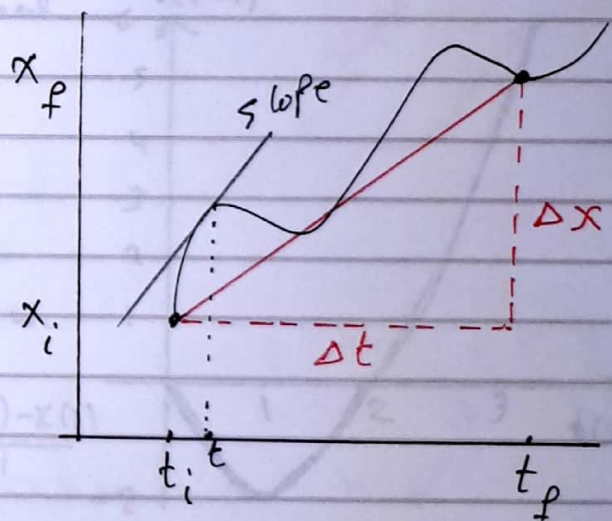 x_f
slope
Δx
x_i
Δt
t_i t t_f